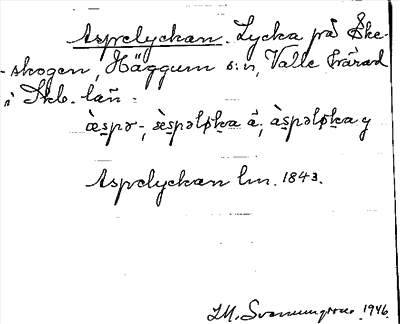 Aspelyckan. Lycka på Ske-
skogen, Häggum s:n, Valle härad
i Skb. län.
æ̀spə-, æ̀spəlȯka ä, àspəlȯka y
Aspelyckan lm. 1843.
1946.